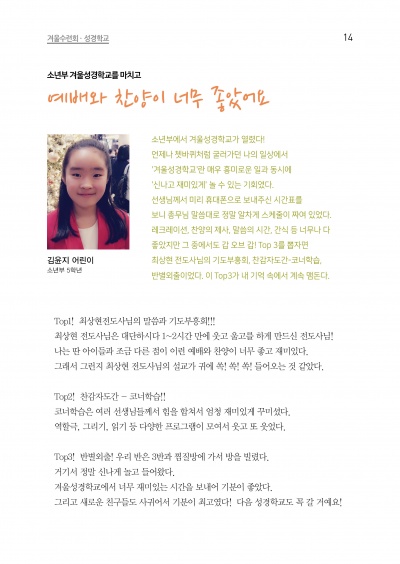 겨울수련회 · 성경학교
14
소년부 겨울성경학교를 마치고
예배와 찬양이 너무 좋았어요
소년부에서 겨울성경학교가 열렸다!
언제나 쳇바퀴처럼 굴러가던 나의 일상에서
'겨울성경학교'란 매우 흥미로운 일과 동시에
'신나고 재미있게' 놀 수 있는 기회였다.
선생님께서 미리 휴대폰으로 보내주신 시간표를
보니 총무님 말씀대로 정말 알차게 스케줄이 짜여 있었다.
레크레이션, 찬양의 제사, 말씀의 시간, 간식 등 너무나 다
좋았지만 그 중에서도 갑 오브 갑! Top 3를 뽑자면
최상현 전도사님의 기도부흥회, 찬감자도간-코너학습,
반별외출이었다. 이 Top3가 내 기억 속에서 계속 맴돈다.
김윤지 어린이
소년부 5학년
Top1! 최상현전도사님의 말씀과 기도부흥회!!!
최상현 전도사님은 대단하시다 1~2시간 만에 웃고 울고를 하게 만드신 전도사님!
나는 딴 아이들과 조금 다른 점이 이런 예배와 찬양이 너무 좋고 재미있다.
그래서 그런지 최상현 전도사님의 설교가 귀에 쏙! 쏙! 쏙! 들어오는 것 같았다.
Top2! 찬감자도간 – 코너학습!!
코너학습은 여러 선생님들께서 힘을 합쳐서 엄청 재미있게 꾸미셨다.
역할극, 그리기, 읽기 등 다양한 프로그램이 모여서 웃고 또 웃었다.
Top3! 반별외출! 우리 반은 3반과 찜질방에 가서 방을 빌렸다.
거기서 정말 신나게 놀고 들어왔다.
겨울성경학교에서 너무 재미있는 시간을 보내어 기분이 좋았다.
그리고 새로운 친구들도 사귀어서 기분이 최고였다! 다음 성경학교도 꼭 갈 거예요!